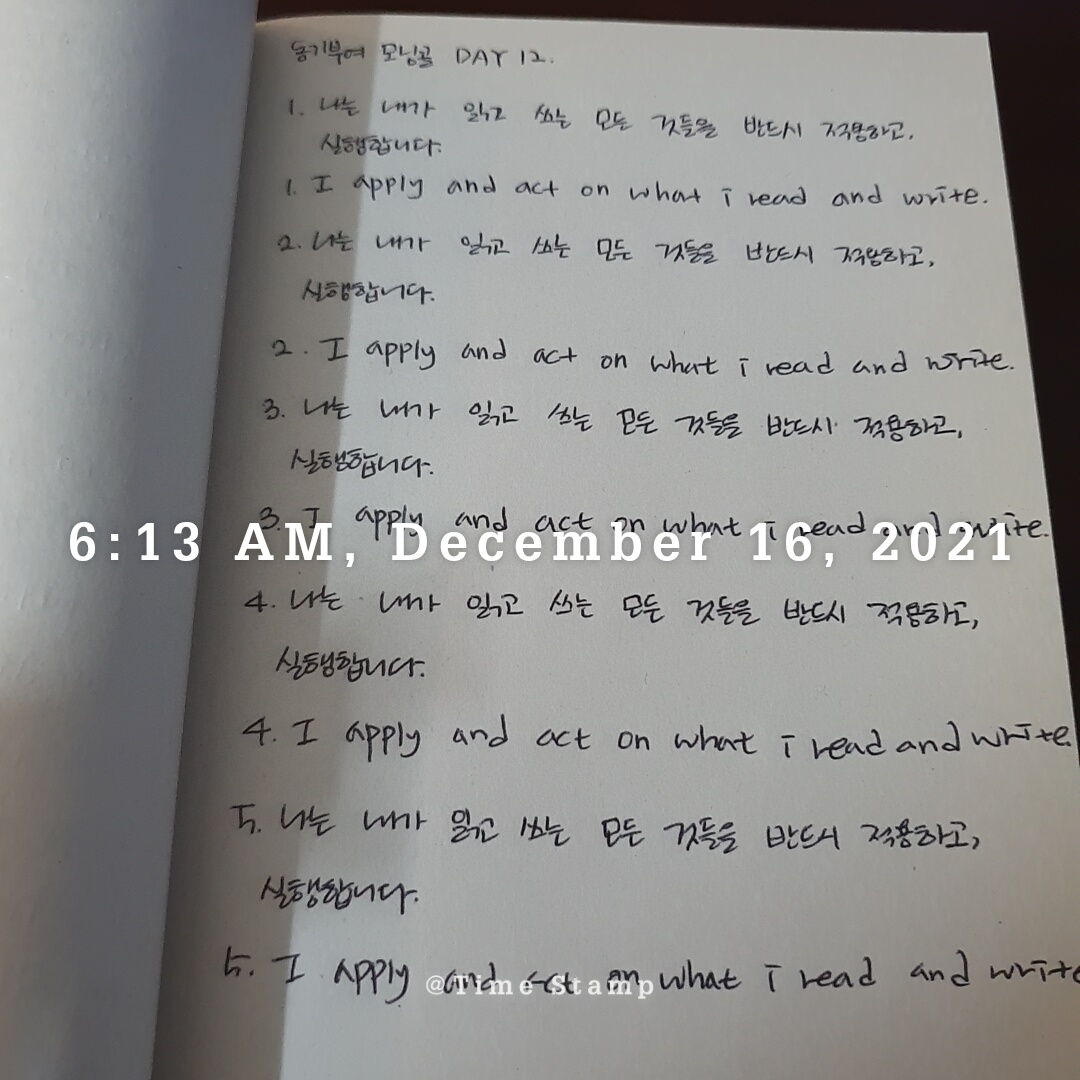 동기부여 모닝콜 DAY 12.
1. 나는 내가 읽고 쓰는 모든 것들을 반드시 적용하고,
실행합니다.
1. I apply and act on what i read and write.
2. 나는 내가 읽고 쓰는 모든 것들을 반드시 적용하고,
실행합니다.
2. I apply and act on what i read and write.
3. 나는 내가 읽고 쓰는 모든 것들을 반드시 적용하고,
실행합니다.
3. I apply and act on what i read and write.
6:13 AM, December 16, 2021
4. 나는 내가 읽고 쓰는 모든 것들을 반드시 적용하고,
실행합니다.
4. I apply and act on what i read and write.
5. 나는 내가 읽고 쓰는 모든 것들을 반드시 적용하고,
실행합니다.
5. I apply and act on what i read and write
@Time Stamp